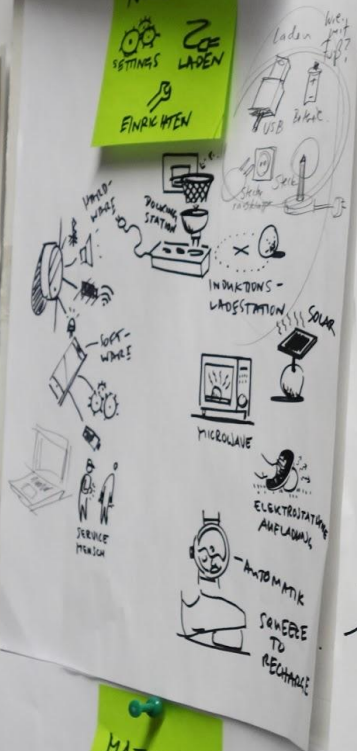 SETTINGS
LADEN
EINRICHTEN
Laden
USB
HARD-
WARE
DOCKING
STATION
INDUKTIONS-
LADESTATION
SOLAR
SOFT-
WARE
MICROWAVE
ELEKTROSTATISCHE
AUFLADUNG
SERVICE
MENSCH
AUTOMATIK
SQUEEZE
TO
RECHARGE